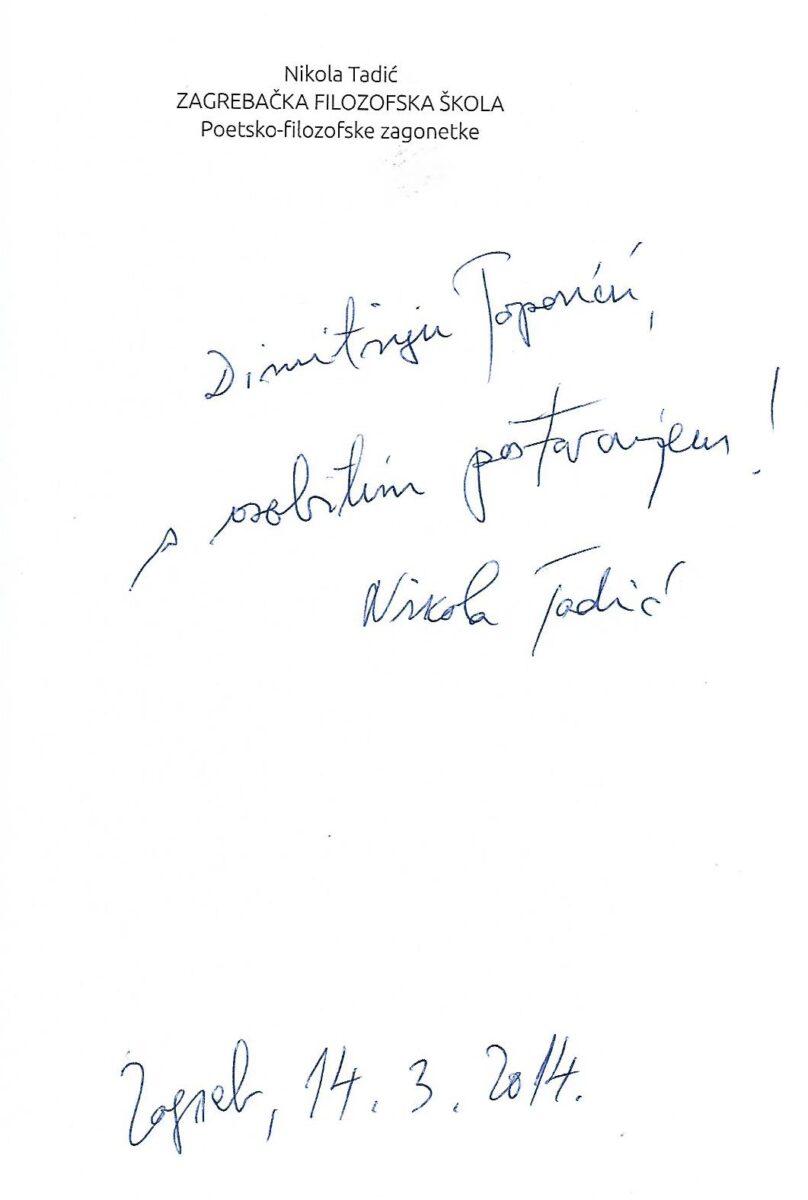 Nikola Tadić
ZAGREBAČKA FILOZOFSKA ŠKOLA
Poetsko-filozofske zagonetke
Dimitriju Popoviću,
s osobitim poštovanjem!
Nikola Tadić
Zagreb, 14. 3. 2014.